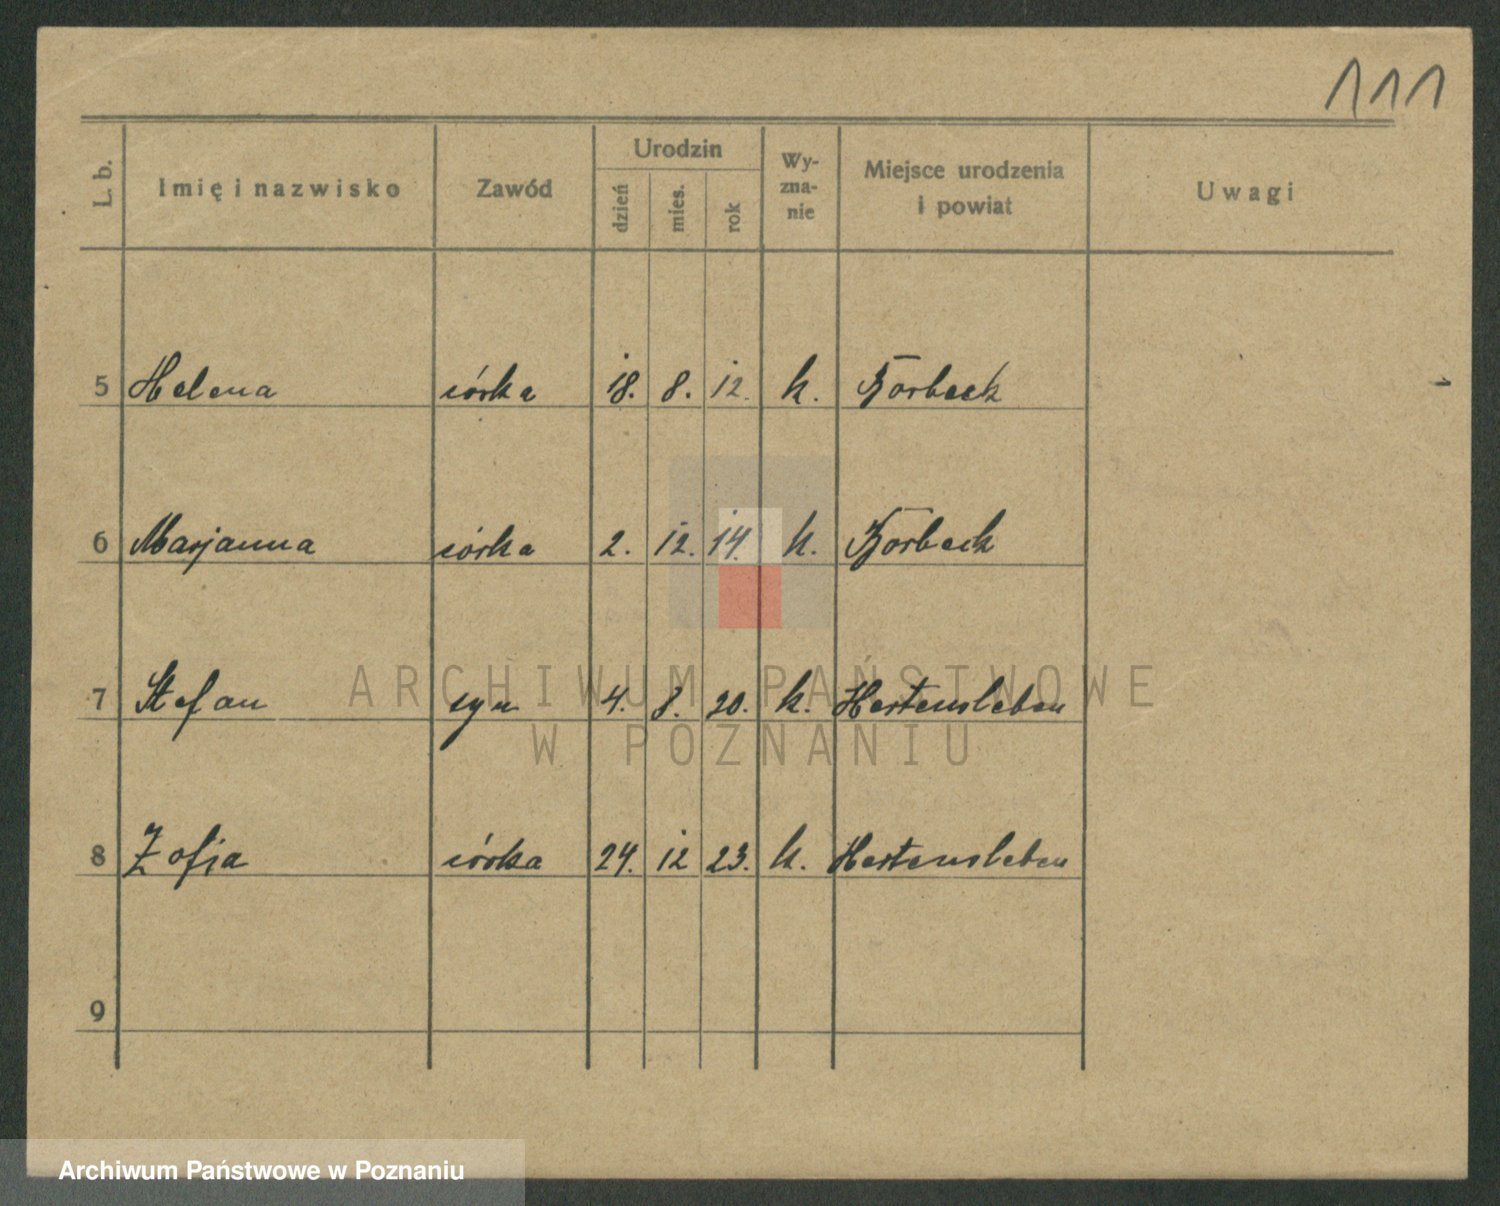 111
L. b. Imię i nazwisko Zawód Urodzin dzień mies. rok Wy-zna-nie Miejsce urodzenia i powiat Uwagi
5 Helena córka 18. 8. 12. k. Borbeck
6 Marjanna córka 2. 12. 14. k. Borbeck
7 Stefan syn 4. 8. 20. k. Hertensleben
8 Zofja córka 24. 12 23. k. Hertensleben
9
ARCHIWUM PAŃSTWOWE
W POZNANIU
Archiwum Państwowe w Poznaniu